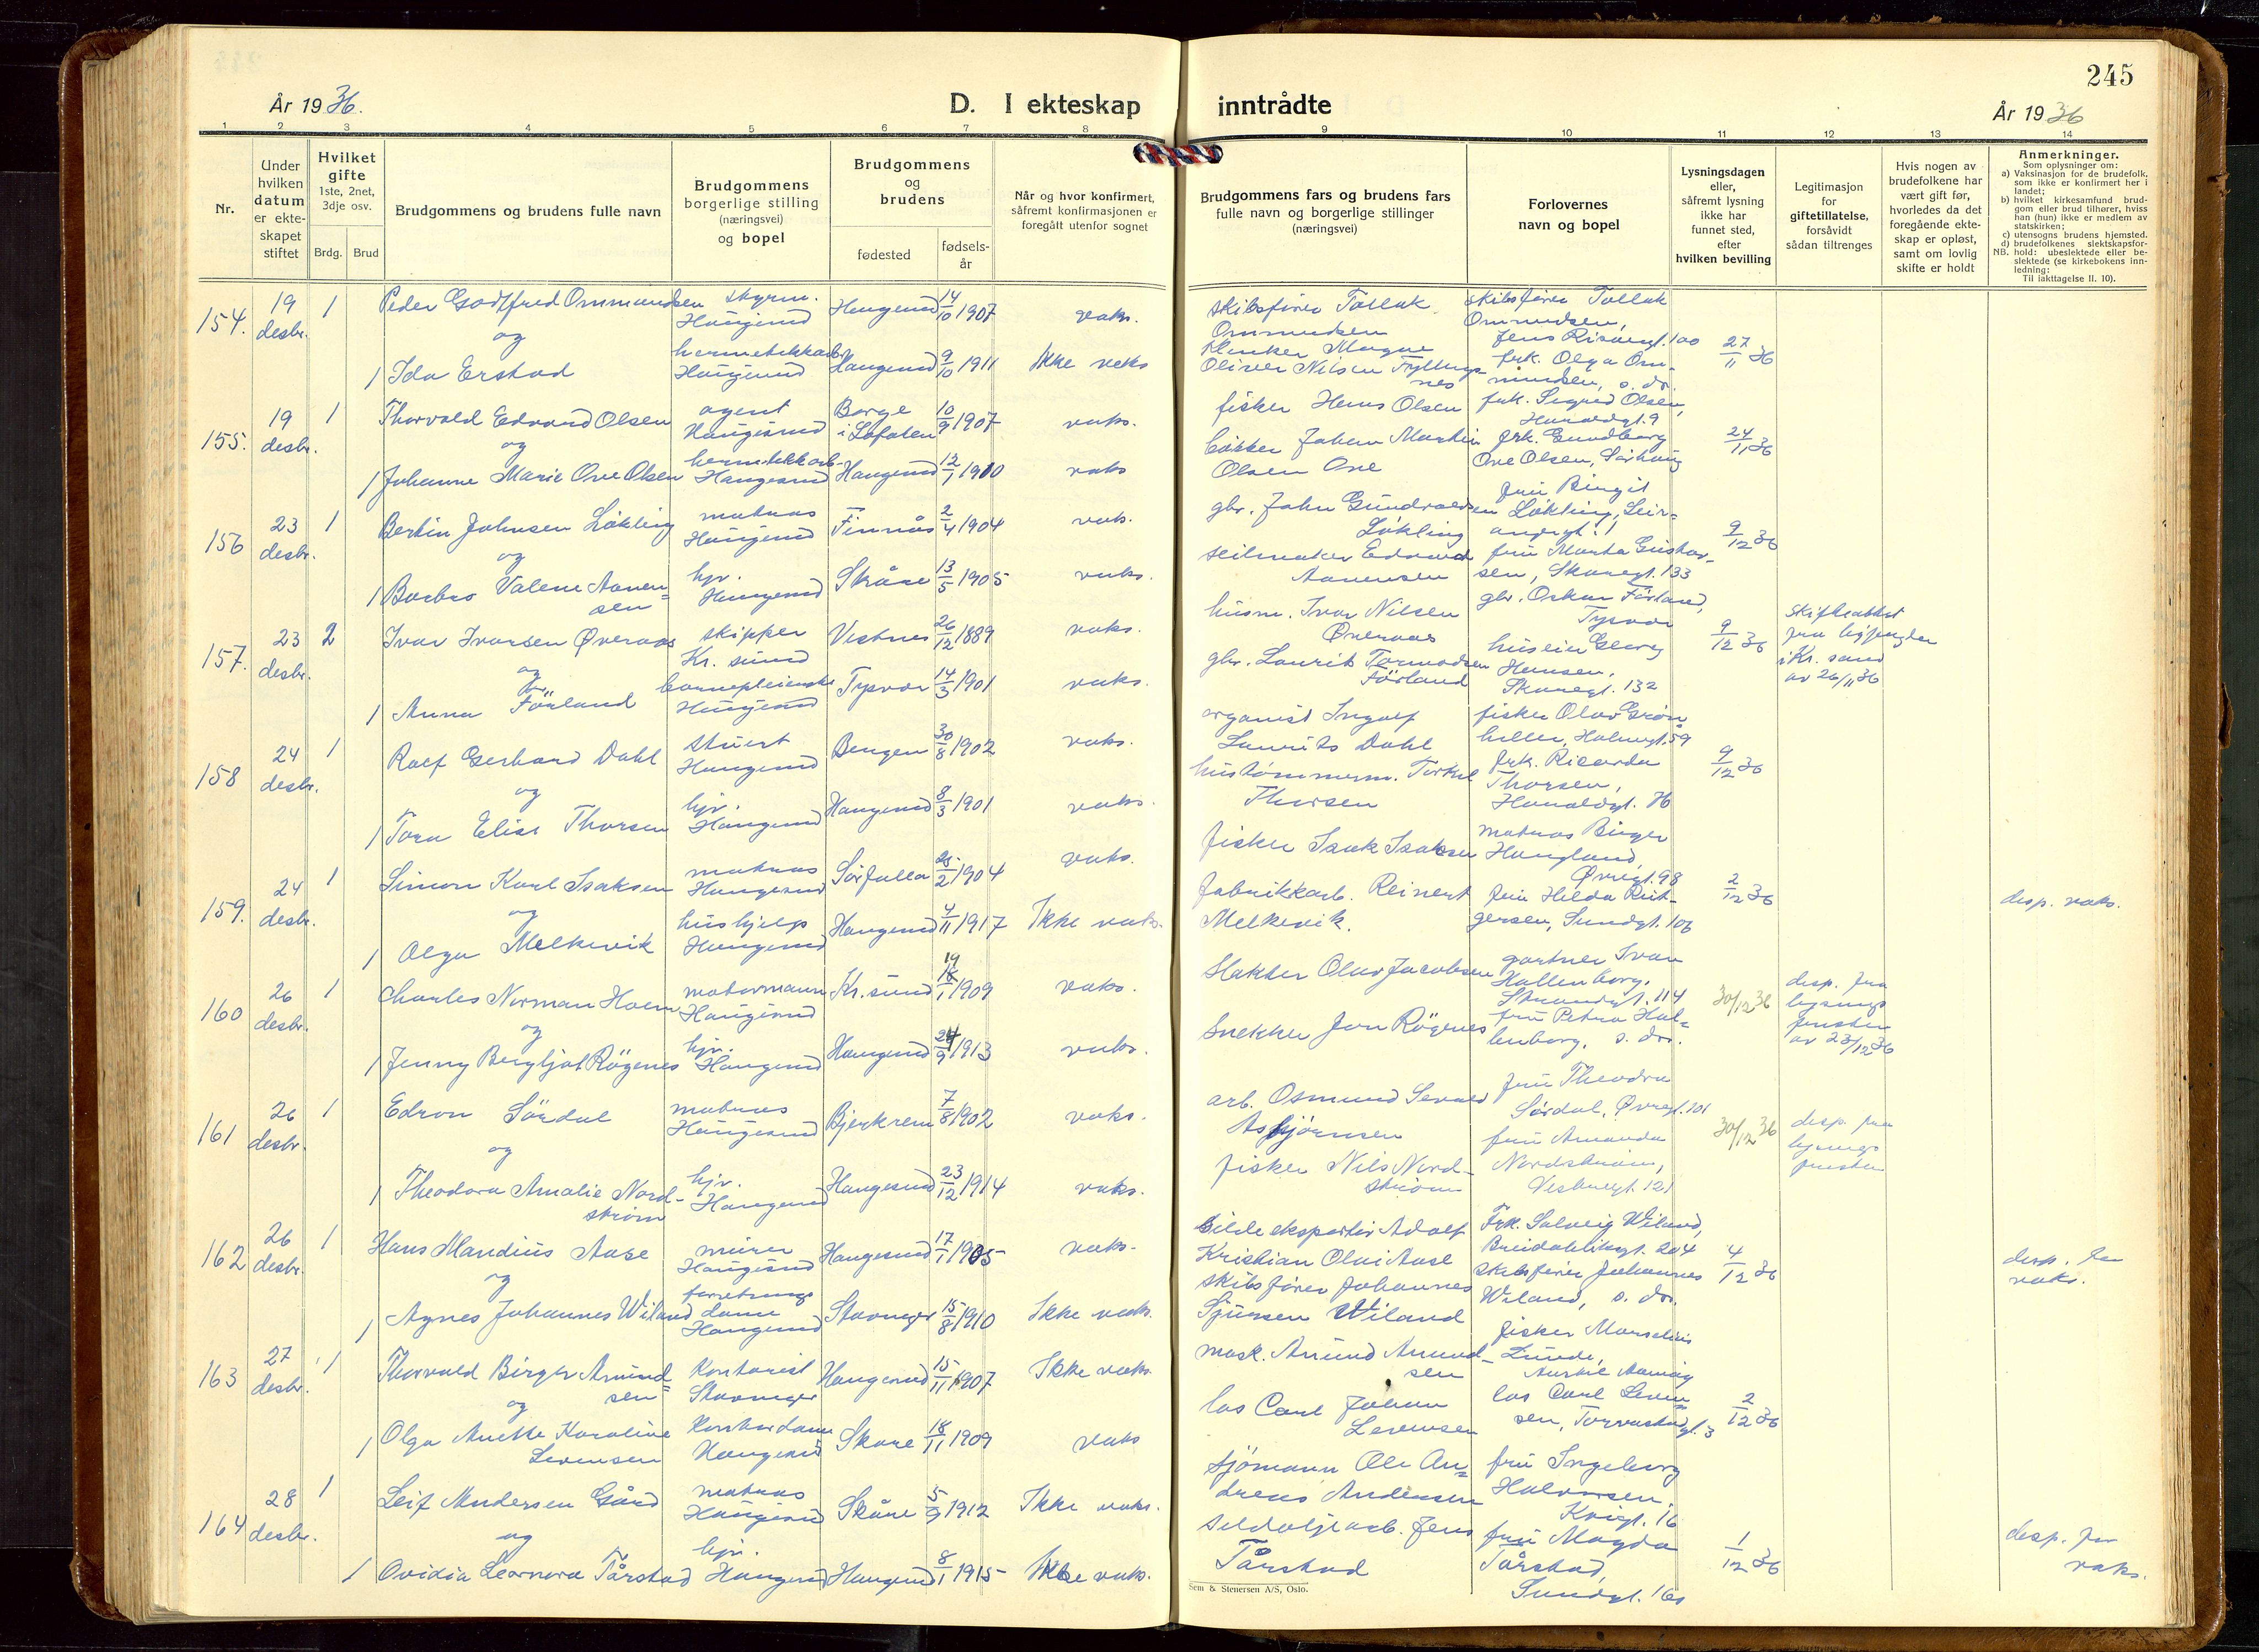 245
År 1936.
D. I ekteskap inntrådte
År 1936
1 2 3 4 5 6 7 8 9 10 11 12 13 14
Nr.
Under hvilken datum er ekteskapet stiftet
Hvilket gifte
1ste, 2net, 3dje osv.
Brdg. Brud
Brudgommens og brudens fulle navn
Brudgommens borgerlige stilling (næringsvei) og bopel
Brudgommens og brudens
fødested
fødsels-år
Når og hvor konfirmert, såfremt konfirmasjonen er foregått utenfor sognet
Brudgommens fars og brudens fars fulle navn og borgerlige stillinger (næringsvei)
Forlovernes navn og bopel
Lysningsdagen eller, såfremt lysning ikke har funnet sted, efter hvilken bevilling
Legitimasjon for giftetillatelse, forsåvidt sådan tiltrenges
Hvis nogen av brudefolkene har vært gift før, hvorledes da det foregående ekteskap er opløst, samt om lovlig skifte er holdt
Anmerkninger.
Som oplysninger om:
a) Vaksinasjon for de brudefolk, som ikke er konfirmert her i landet;
b) hvilket kirkesamfund brudgom eller brud tilhører, hviss han (hun) ikke er medlem av statskirken;
c) utensogns brudens hjemsted.
d) brudefolkenes slektskapsforhold: ubeslektede eller beslektede (se kirkebokens innledning:
NB. Til iakttagelse II. 10).
154. 19 desbr. 1 Peder Godtfred Ommundsen styrm. Haugesund Haugesund 14/10 1907 vaks. skibsfører Tollak Ommundsen skibsfører Tollak Ommundsen,
og
1 Ida Erstad hermetikkarb. Haugesund Haugesund 9/10 1911 Ikke vaks Oliver Nilsen frk. Olga Ommundsen, s. dr. 27/11 36
155. 19 desbr. 1 Thorvald Edvard Olsen agent Haugesund Borge i Lofoten 10/9 1907 vaks. fisker Hans Olsen frk. Sigrid Olsen, Haraldgt. 9
og
1 Johanne Marie Ove Olsen hermetikkarb. Haugesund Haugesund 12/1 1910 vaks Johan Martin Olsen Ove frk. Gundborg Ove Olsen, Sørhaug 24/11 36
156 23 desbr. 1 Bertin Johnsen Løkling matros Haugesund Finnås 2/4 1904 vaks. gbr. John Gundvaldsen Løkling fru Birgit Løkling,
og
1 Borbro Valene Aanensen hjv. Haugesund Skåre 13/5 1905 vaks. seilmaker Edvard Aanensen fru Marta Gustavsen, Skaregt. 133 9/12 36
157. 23 desbr. 2 Ivar Ivarsen Øveraas skipper Kr. sund Vestnes 26/12 1889 vaks. husm. Ivar Nilsen Øveraas gbr. Oskar Førland, Tysvær
og
1 Anna Førland barnepleierske Haugesund Tysvær 14/3 1901 vaks. gbr. Laurits Tormodsen Førland huseier Georg Hansen, Skaregt. 132 9/12 36 skifteattest fra byfogden i Kr. sund av 26/11 36
158 24 desbr. 1 Rolf Gerhard Dahl stuert Haugesund Bergen 30/8 1902 vaks. organist Ingolf Laurits Dahl fisker Olav Grønheller, Holmegt. 59
og
1 Tora Elise Thorsen hjv. Haugesund Haugesund 8/3 1901 vaks. hustømmerm. Torkel Thorsen frk. Ricarda Thorsen, Haraldgt. 76 9/12 36
159. 24 desbr. 1 Simon Karl Isaksen matros Haugesund Sørfolla 25/2 1904 vaks. fisker Isak Isaksen matros Birger Haugland, Øvregt. 98
og
1 Olga Melkevik hushjelp Haugesund Haugesund 4/11 1917 Ikke vaks. fabrikkarb. Reinert Melkevik. fru Hilda Rutgersen, Sundgt. 106 2/12 36 desp. vaks.
160 26 desbr. 1 Charles Norman Holm motormann Haugesund Kr. sund 19/1 1909 vaks. slakter Olav Jacobsen gartner Ivar Hallenborg, Strandgt. 114
og
1 Jenny Bergljot Røgenes hjv. Haugesund Haugesund 24/9 1913 vaks. snekker Jon Røgenes fru Petra Hallenborg, s. dr. 30/12 36 desp. fra lysningsfristen av 23/12 36
161 26 desbr. 1 Edron Sørdal matros Haugesund Bjerkreim 7/8 1902 vaks. arb. Osmund Sevald Asbjørnsen fru Theodra Sørdal, Øvregt. 101
og
1 Theodora Amalie Nordstrøm hjv. Haugesund Haugesund 23/12 1914 vaks. fisker Nils Nordstrøm fru Amanda Nordstrøm, Vestregt. 121 30/12 36 desp. fra lysningsfristen
162 26 desbr. 1 Hans Mandius Aase murer Haugesund Haugesund 17/1 1905 vaks. sildeeksportør Adolf Kristian Olai Aase Frk. Solveig Wiland, Breidablikgt. 204
og
1 Agnes Johannes Wiland forretningsdame Haugesund Stavanger 15/8 1910 Ikke vaks. skibsfører Johannes Sjursen Wiland skibsfører Johannes Wiland, s. dr. 4/12 36 desp. for vaks.
163 27 desbr. 1 Thorvald Birger Amundsen kontorist Stavanger Haugesund 15/11 1907 Ikke vaks. mask. Amund Amundsen fisker Marselius Lunde,
og
1 Olga Anetke Karoline Sevensen kontordame Haugesund Skåre 18/11 1909 vaks los Carl Johan Sevensen los Carl Sevensen, Torvastadgt. 3 2/12 36
164 28 desbr. 1 Leif Andersen Gård matros Haugesund Skåre 5/9 1912 Ikke vaks. sjømann Ole Andreas Andersen fru Ingeborg Halvorsen, Krigt. 16
og
1 Ovidia Leornora Tårstad hjv. Haugesund Haugesund 8/1 1915 Ikke vaks. sildoljearb. Jens Tårstad fru Magda Tårstad, Sundgt. 160 1/12 36 desp. for vaks.
Sem & Stenersen A/S, Oslo.